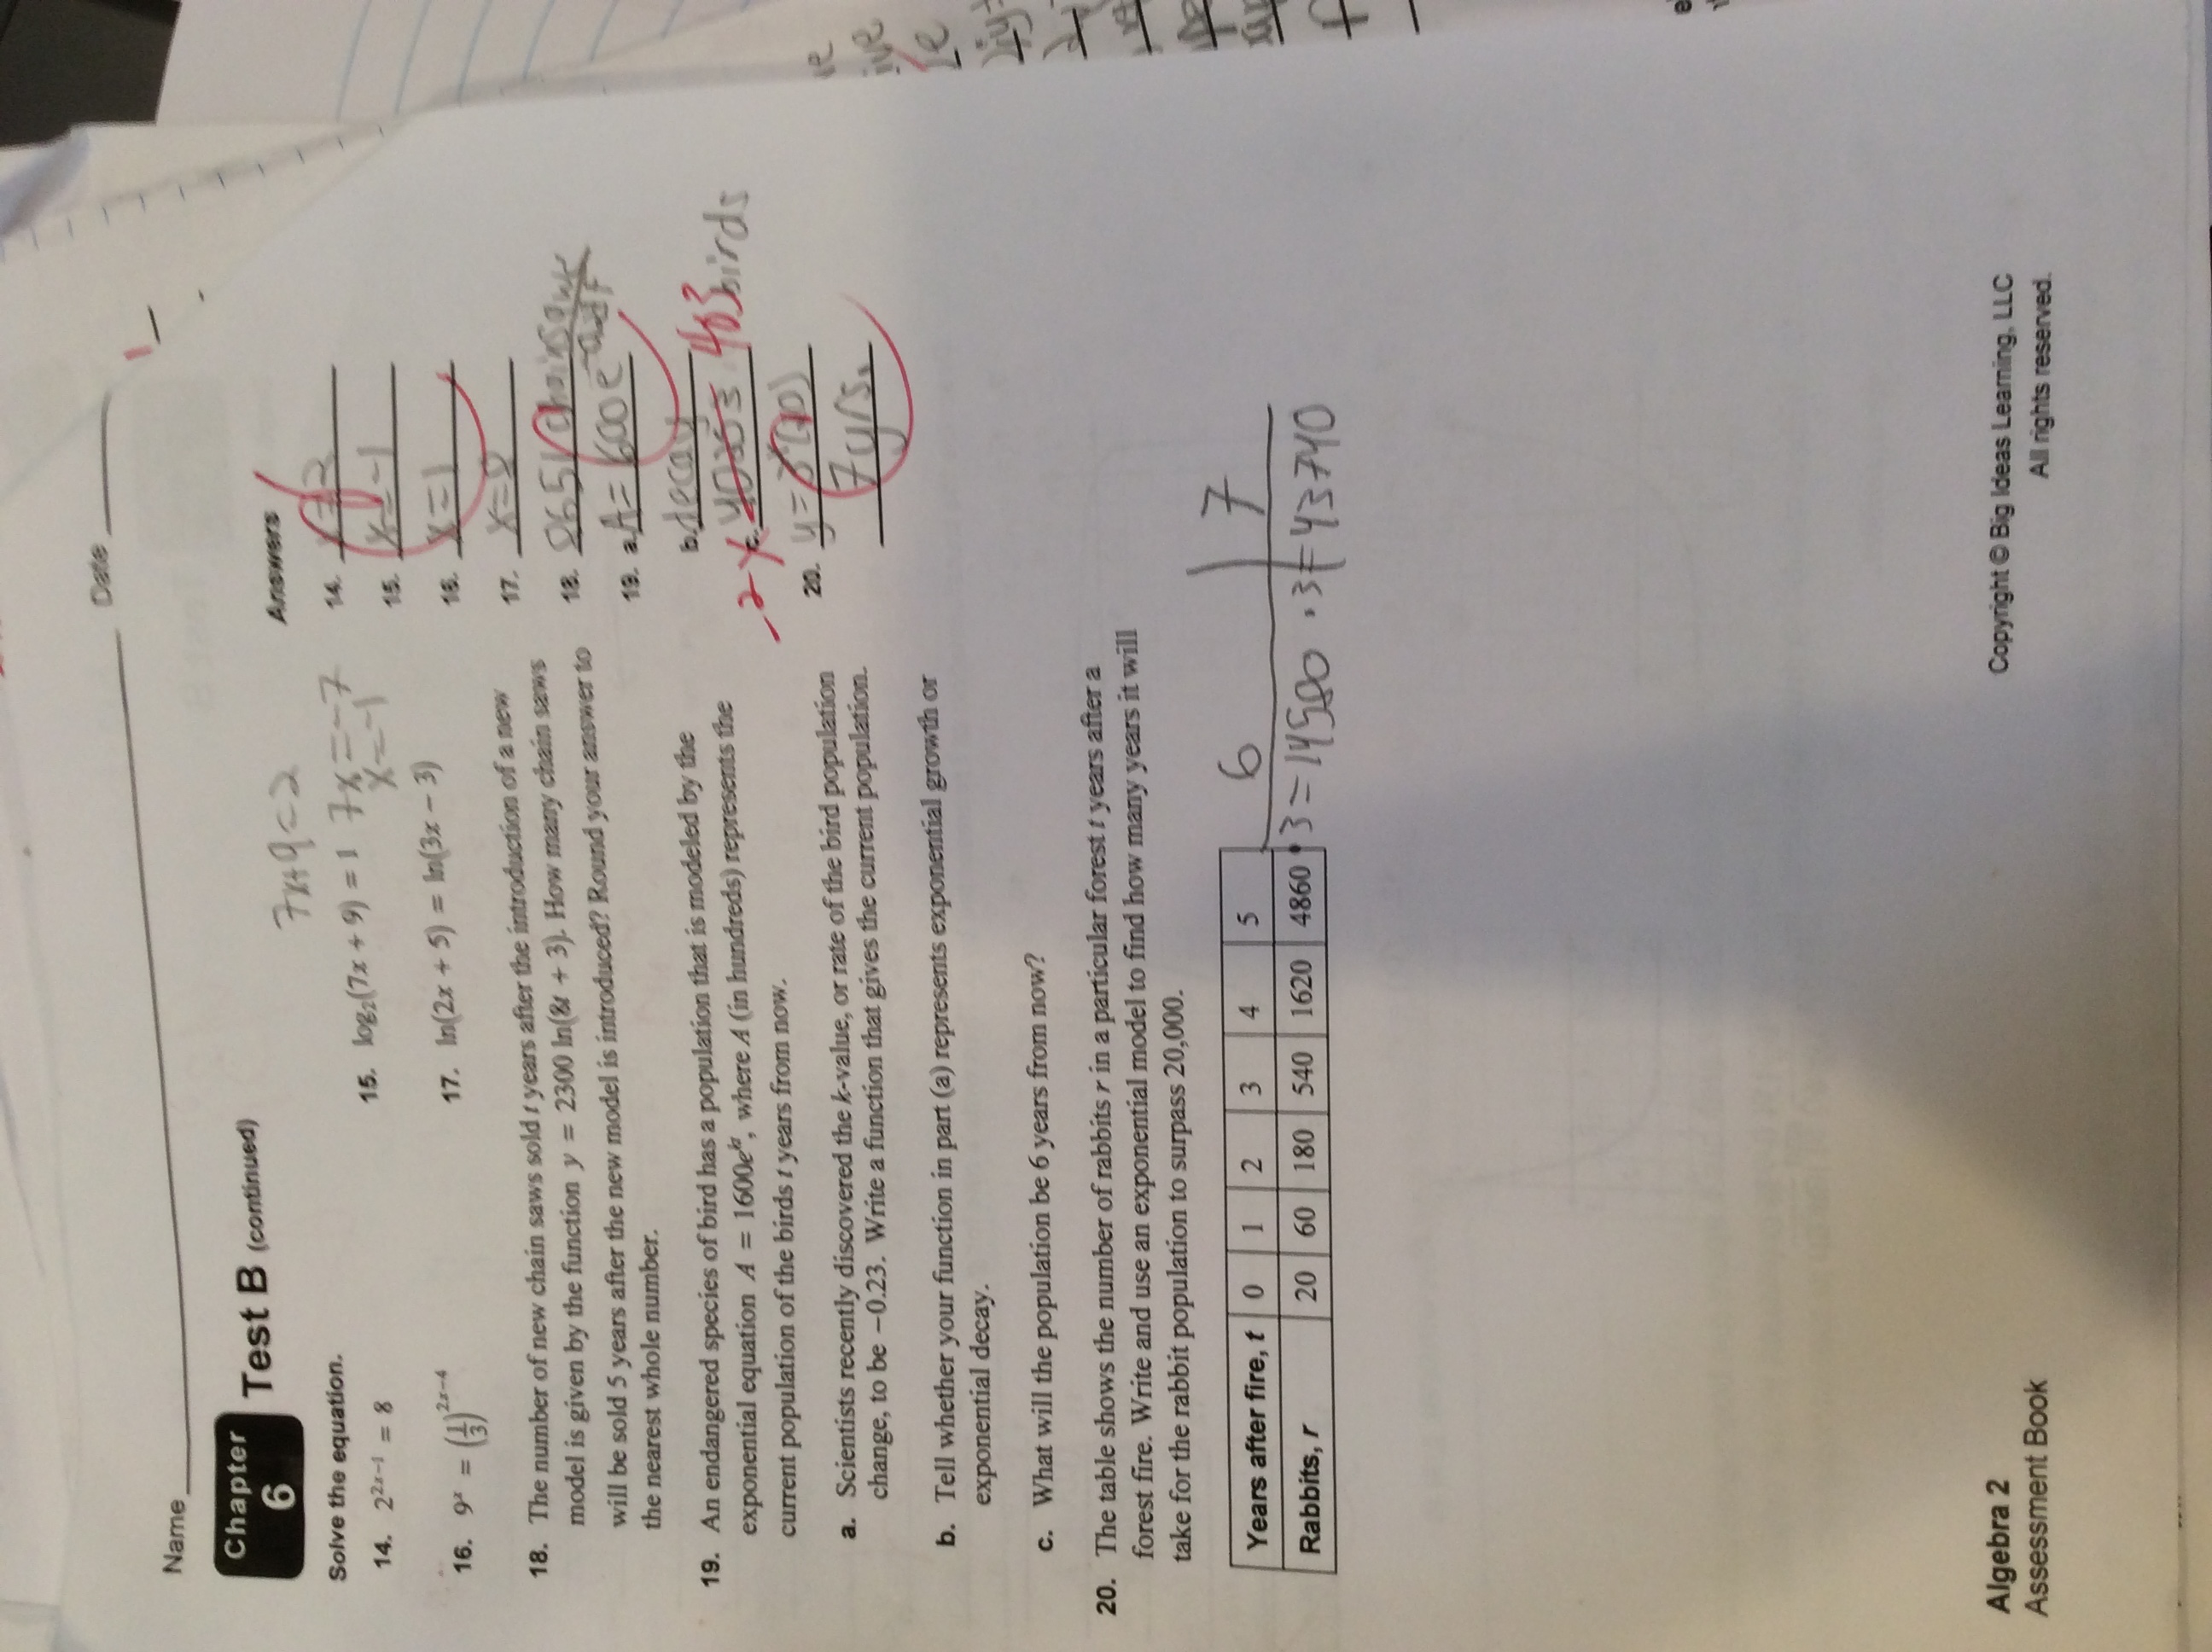 Date
Name
Chapter 6
Test B (continued)
Answers
7x+9=2
Solve the equation.
14. 2^{2x-1} = 8
15. log₂(7x + 9) = 1
7x=-7
x=-1
16. 9^x = (1/3)^{2x-4}
17. ln(2x + 5) = ln(3x - 3)
14.
15. x=-1
16. x=1
17.
18. The number of new chain saws sold t years after the introduction of a new
model is given by the function y = 2300 ln(8t + 3). How many chain saws
will be sold 5 years after the new model is introduced? Round your answer to
the nearest whole number.
18. 8651 chainsaws
19. a. A=
b. decay
-2 X c. 403 birds
20. y=
7yrs.
19. An endangered species of bird has a population that is modeled by the
exponential equation A = 1600e^{kt}, where A (in hundreds) represents the
current population of the birds t years from now.
a. Scientists recently discovered the k-value, or rate of the bird population
change, to be −0.23. Write a function that gives the current population.
b. Tell whether your function in part (a) represents exponential growth or
exponential decay.
c. What will the population be 6 years from now?
20. The table shows the number of rabbits r in a particular forest t years after a
forest fire. Write and use an exponential model to find how many years it will
take for the rabbit population to surpass 20,000.
Years after fire, t 0 1 2 3 4 5 6 7
Rabbits, r 20 60 180 540 1620 4860 ·3=14580 ·3=43740
Algebra 2
Assessment Book
Copyright © Big Ideas Learning, LLC
All rights reserved.